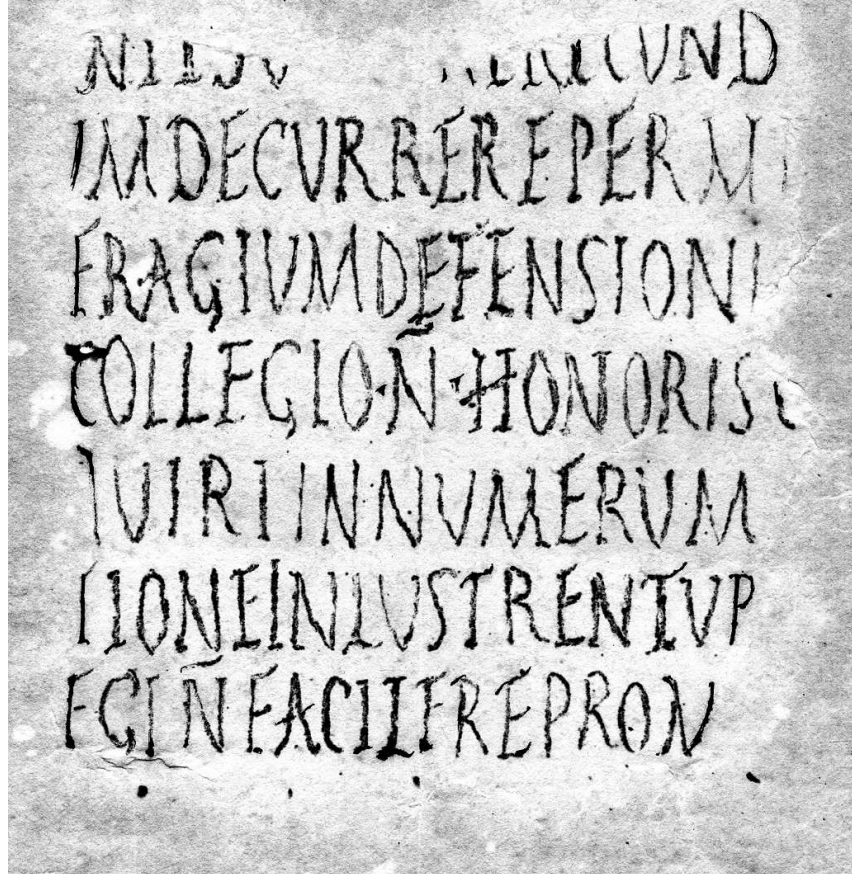 UND
IM DECURRERE PERMI
FRAGIUM DEFENSIONI
COLLEGIO·N̄·HONORIS
IUIRI IN NUMERUM
IIONE INLUSTRENTUP
EGI N̄ FACILE REPRON